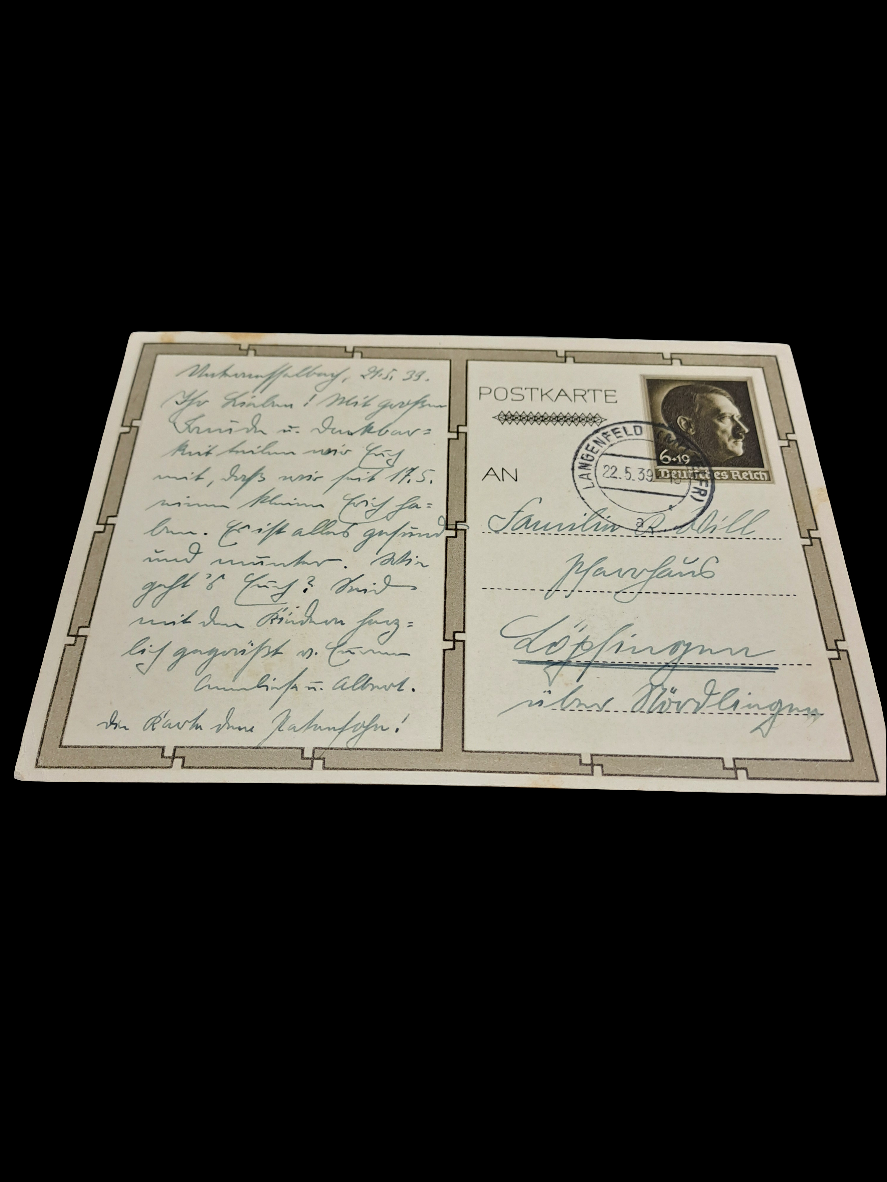 Unteraltenbernheim, 21.5.39.
Ihr Lieben! Mit großer
Freude u. Dankbar=
keit teilen wir Euch
mit, daß wir seit 17.5.
einen kleinen Erich ha=
ben. Es ist alles gesund
und munter. Wie
geht's Euch? Seid
mit den Kindern herz=
lich gegrüßt v. Euren
Anneliese u. Albert.
die Karte dem Patensohn!
POSTKARTE
AN
6+19
Deutsches Reich
LANGENFELD
22.5.39
a
Familie R. Will
Pfarrhaus
Löpsingen
über Nördlingen